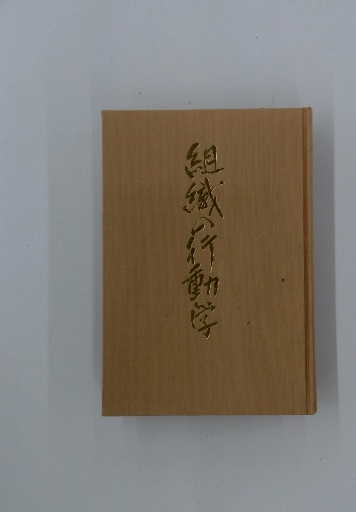 組織へ行動学